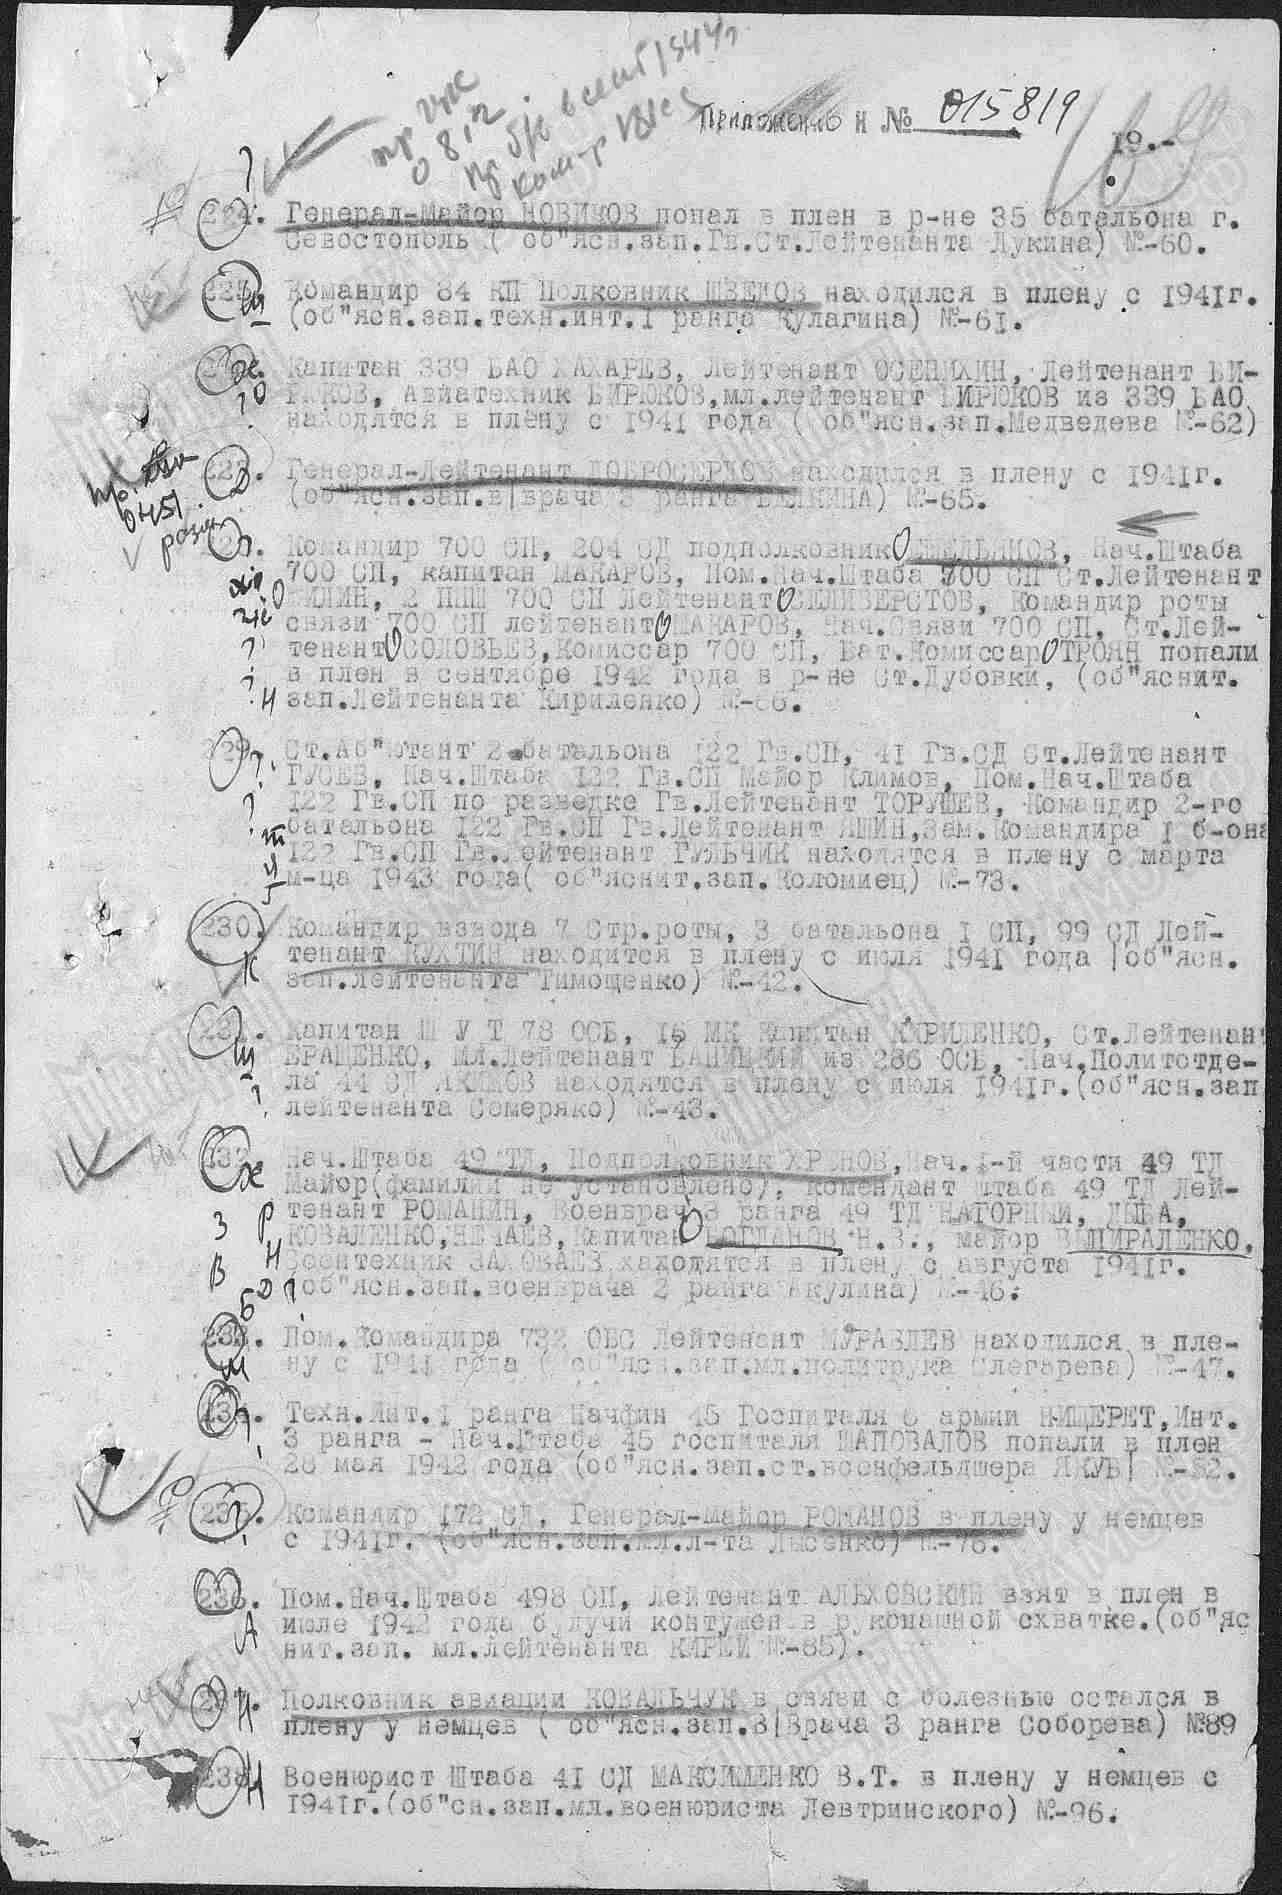 Приложение к № 015819
19.-
224. Генерал-Майор НОВИКОВ попал в плен в р-не 35 батальона г.
Севостополь ( об"ясн.зап.Гв.Ст.Лейтенанта Лукина) №-60.
225. Командир 84 КП Полковник ШВЕЦОВ находился в плену с 1941г.
(об"ясн.зап.техн.инт.I ранга Кулагина) №-61.
Капитан 339 БАО ХАХАРЕВ, Лейтенант ОСЕНИХИН, Лейтенант БИ-
РЮКОВ, Авиатехник БИРЮКОВ,мл.лейтенант БИРЮКОВ из 339 БАО
находятся в плену с 1941 года ( об"ясн.зап.Медведева №-62)
Генерал-Лейтенант ДОБРОСЕРДОВ находился в плену с 1941г.
(об"ясн.зап.в|врача 3 ранга №-65.
Командир 700 СП, 204 СД подполковник ЕМЕЛЬЯНОВ, Нач.Штаба
700 СП, капитан МАКАРОВ, Пом.Нач.Штаба 700 СП Ст.Лейтенант
2 ПНШ 700 СП Лейтенант СЕЛИВЕРСТОВ, Командир роты
связи 700 СП лейтенант МАКАРОВ, Нач.Связи 700 СП, Ст.Лей-
тенант СОЛОВЬЕВ,Комиссар 700 СП, Бат.Комиссар ТРОЯН попали
в плен в сентябре 1942 года в р-не Ст.Дубовки, (об"яснит.
зап.Лейтенанта Кириленко) №-66.
229. Ст.Ад"ютант 2 батальона 122 Гв.СП, 41 Гв.СД Ст.Лейтенант
ГУСЕВ, Нач.Штаба 122 Гв.СП Майор Климов, Пом.Нач.Штаба
122 Гв.СП по разведке Гв.Лейтенант ТОРУШЕВ, Командир 2-го
батальона 122 Гв.СП Гв.Лейтенант ЯШИН,зам.Командира I б-она
122 Гв.СП Гв.Лейтенант ГУЛЬЧИК находятся в плену с марта
м-ца 1943 года( об"яснит.зап.Коломиец) №-73.
230. Командир взвода 7 Стр.роты, 3 батальона I СП, 99 СД Лей-
тенант КУХТИН находится в плену с июля 1941 года |об"ясн.
зап.лейтенанта Тимощенко) №-42.
231. Капитан Ш У Т 78 ОСБ, 16 МК Капитан КИРИЛЕНКО, Ст.Лейтенант
ЕРАЩЕНКО, Мл.Лейтенант из 286 ОСБ, Нач.Политотде-
ла 44 СД ЯКИМОВ находятся в плену с июля 1941г.(об"ясн.зап
лейтенанта Семеряко) №-43.
232. Нач.Штаба 49 ТД, Подполковник ХРЕНОВ,Нач.I-й части 49 ТД
Майор(фамилии не установлено), комендант штаба 49 ТД Лей-
тенант РОМАНИН, Военврач 3 ранга 49 ТД НАГОРНЫЙ, ДЫБА,
КОВАЛЕНКО,НЕЧАЕВ,Капитан БОГДАНОВ Н.З., майор ВЫШИРАЛЕНКО,
Воентехник находятся в плену с августа 1941г.
(об"ясн.зап.военврача 2 ранга Акулина) №-46.
233. Пом.Командира 732 ОБС Лейтенант МУРАВЛЕВ находился в пле-
ну с 1941 года ( об"яс.зап.мл.политрука Слегарева) №-47.
234. Техн.Инт.I ранга Начфин 45 Госпиталя 6 армии НИЩЕРЕТ,Инт.
3 ранга - Нач.Штаба 45 госпиталя ШАПОВАЛОВ попали в плен
28 мая 1942 года (об"ясн.зап.ст.военфельдшера ЯКУБ|
235. Командир 172 СД, Генерал-майор РОМАНОВ в плену у немцев
с 1941г. (об"ясн.зап.мл.л-та Лысенко) №-76.
236. Пом.Нач.Штаба 498 СП, Лейтенант АЛЬХОВСКИЙ взят в плен в
июле 1942 года будучи контужен в рукопашной схватке.(об"яс
нит.зап. мл.лейтенанта КИРЕЙ №-85).
Полковник авиации КОВАЛЬЧУК в связи с болезнью остался в
плену у немцев ( об"ясн.зап.В|Врача 3 ранга Соборева) №89
238. Военюрист Штаба 41 СД МАКСИМЕНКО В.Т. в плену у немцев с
1941г.(об"сн.зап.мл.военюриста Левтринского) №-96.